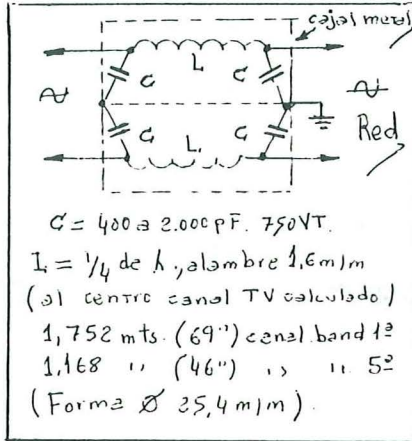 caja metal
L
C C
C C
L
Red
C = 400 a 2.000 pF. 750VT.
L = 1/4 de λ, alambre 1,6 m/m
(al centro canal TV calculado)
1,752 mts. (69") canal band 1ª
1.168 " (46") " " 5ª
(Forma Ø 25,4 m/m).